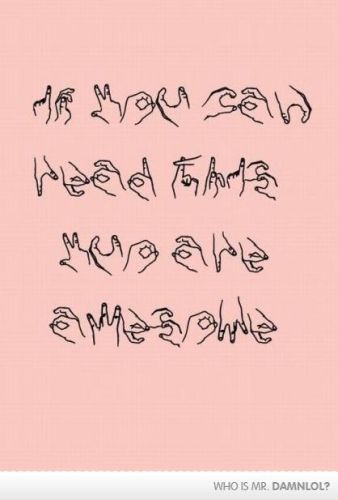 if you can
read this
yuo are
awesome
WHO IS MR. DAMNLOL?